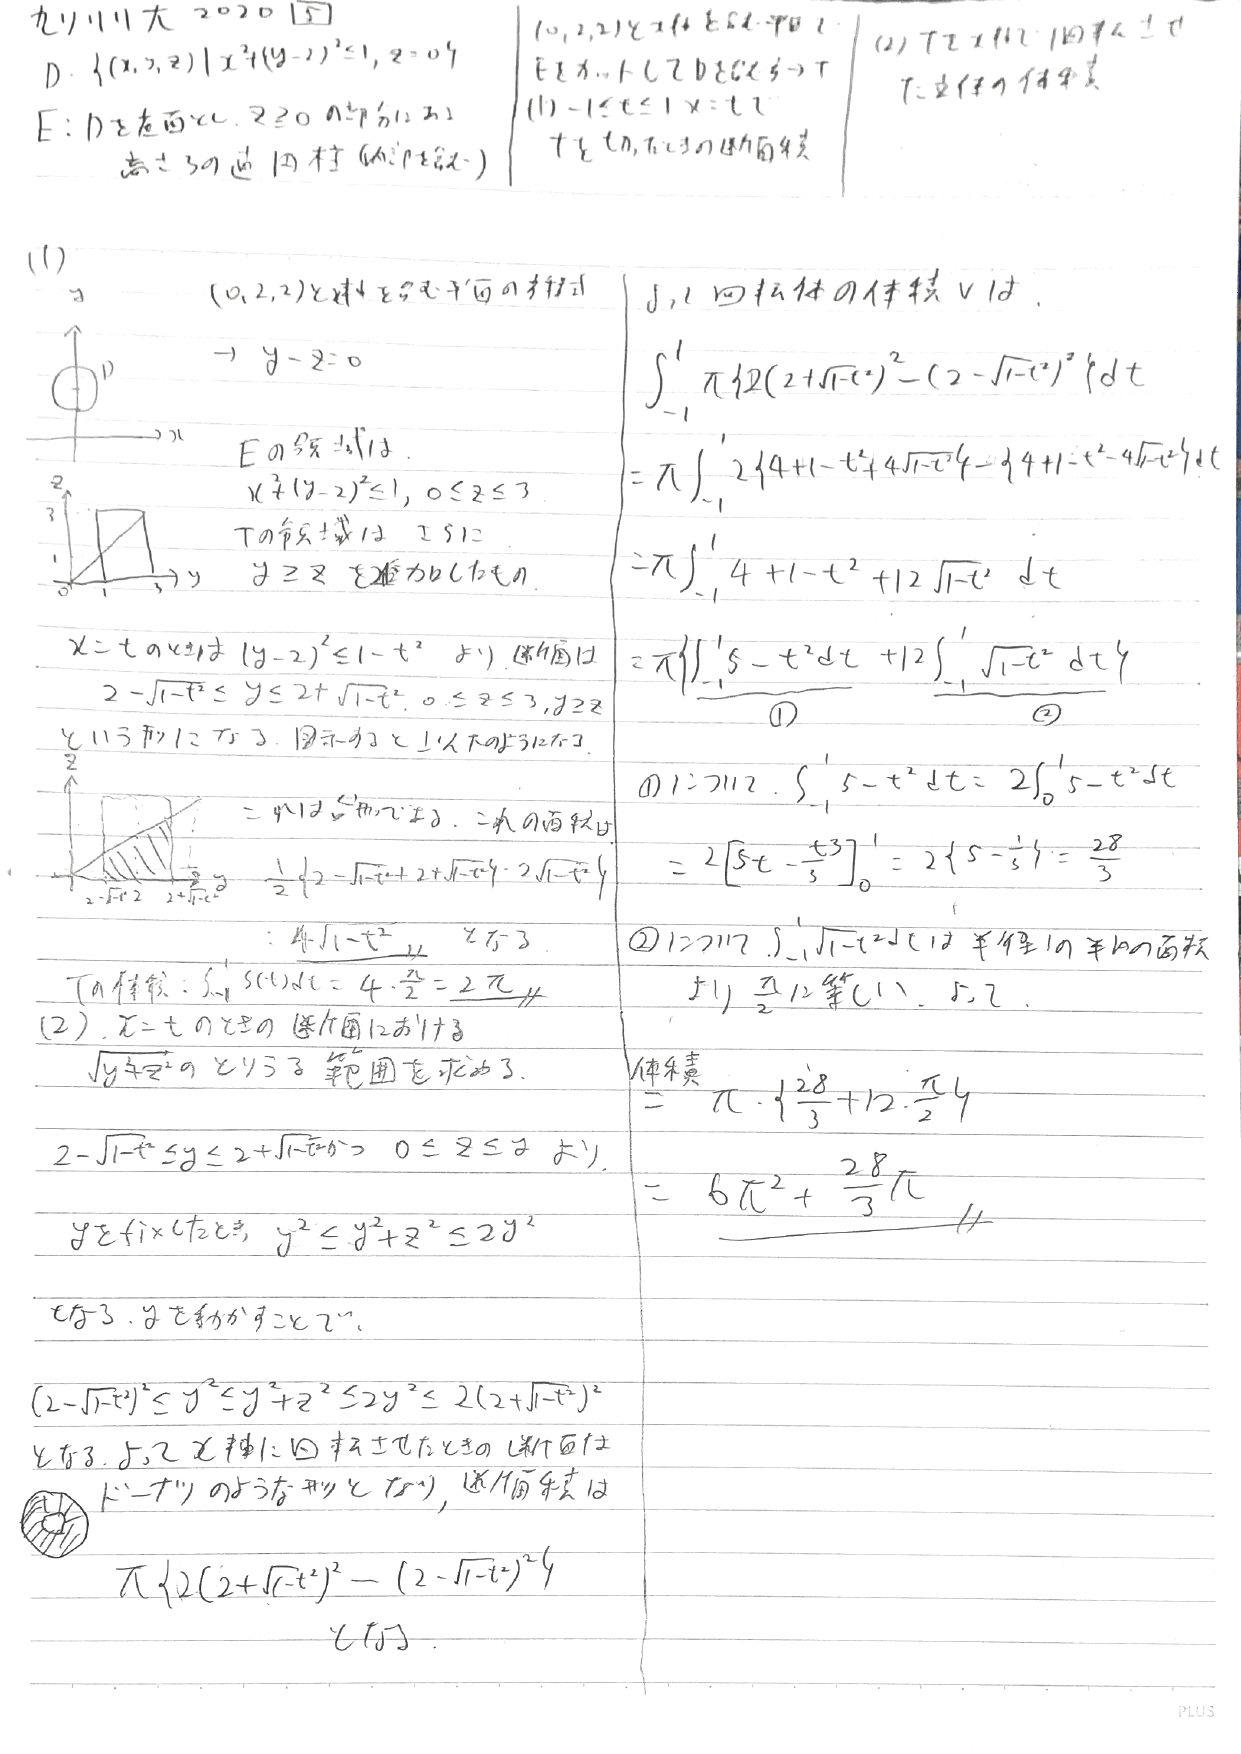 九州大 2020 5
D: {(x, y, z) | x²+(y-2)²≤1, z=0}
E: Dを底面とし、z≥0 の部分にある
高さ3の直円柱(内部を含む)
(0,2,2)とx軸を含む平面で
EをカットしてDを含む方→T
(1) -1≤t≤1 x=tで
Tを切ったときの断面積
(2) Tをx軸で1回転させ
た立体の体積
(1)
y
D
x
z
3
1
0
1
3
y
(0,2,2)とx軸を含む平面の方程式
→ y-z=0
Eの領域は.
x²+(y-2)²≤1, 0≤z≤3
Tの領域は さらに
y≥z を追加したもの.
x=tのときは (y-2)²≤1-t² より、断面は
2-√1-t² ≤ y ≤ 2+√1-t², 0≤z≤3, y≥z
という形になる. 図示すると以下のようになる.
z
y
2-√1-t² 2 2+√1-t²
これは台形である. これの面積は
1/2 {2-√1-t²+2+√1-t²}・2√1-t²}
: 4√1-t² となる
Tの体積: ∫₋₁¹ S(t)dt = 4・π/2 = 2π
(2). x=tのときの断面における
√y²+z² のとりうる範囲を求める.
2-√1-t² ≤ y ≤ 2+√1-t² かつ 0≤z≤y より.
yをfixしたとき, y² ≤ y²+z² ≤ 2y²
となる. yを動かすことで.
(2-√1-t²)² ≤ y² ≤ y²+z² ≤ 2y² ≤ 2(2+√1-t²)²
となる. よってx軸に回転させたときの断面は
ドーナツのような形となり, 断面積は
π{2(2+√1-t²)² - (2-√1-t²)²}
となる.
よって回転体の体積Vは.
∫₋₁¹ π{2(2+√1-t²)² - (2-√1-t²)²}dt
= π∫₋₁¹ 2{4+1-t²+4√1-t²} - {4+1-t²-4√1-t²}dt
= π∫₋₁¹ 4+1-t²+12√1-t² dt
= π{∫₋₁¹ 5-t² dt + 12∫₋₁¹ √1-t² dt}
① ②
①について. ∫₋₁¹ 5-t² dt = 2∫₀¹ 5-t² dt
= 2[5t - t³/3]₀¹ = 2{5-1/3} = 28/3
②について ∫₋₁¹ √1-t² dtは半径1の半円の面積
より π/2 に等しい. よって.
体積
= π・{28/3 + 12・π/2}
= 6π² + 28/3 π
PLUS